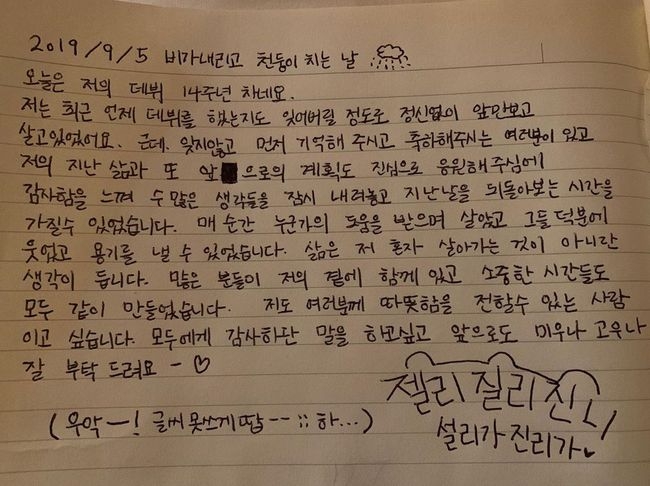 2019/9/5 비가내리고 천둥이 치는 날
오늘은 저의 데뷔 14주년 차네요.
저는 최근 언제 데뷔를 했는지도 잊어버릴 정도로 정신없이 앞만보고
살고있었어요. 근데. 잊지않고 먼저 기억해 주시고 축하해주시는 여러분이 있고
저의 지난 삶과 또 앞으로의 계획도 진심으로 응원해 주심에
감사함을 느껴 수 많은 생각들을 잠시 내려놓고 지난날을 뒤돌아보는 시간을
가질수 있었습니다. 매 순간 누군가의 도움을 받으며 살았고 그들 덕분에
웃었고 용기를 낼 수 있었습니다. 삶은 저 혼자 살아가는 것이 아니란
생각이 듭니다. 많은 분들이 저의 곁에 함께 있고 소중한 시간들도
모두 같이 만들었습니다. 저도 여러분께 따뜻함을 전할수 있는 사람
이고 싶습니다. 모두에게 감사하단 말을 하고싶고 앞으로도 미우나 고우나
잘 부탁 드려요 ~ ♡
젤리 질리 진니
(우악ㅡ! 글씨 못쓰게땀 -- ;; 하...)
설리가 진리가♥